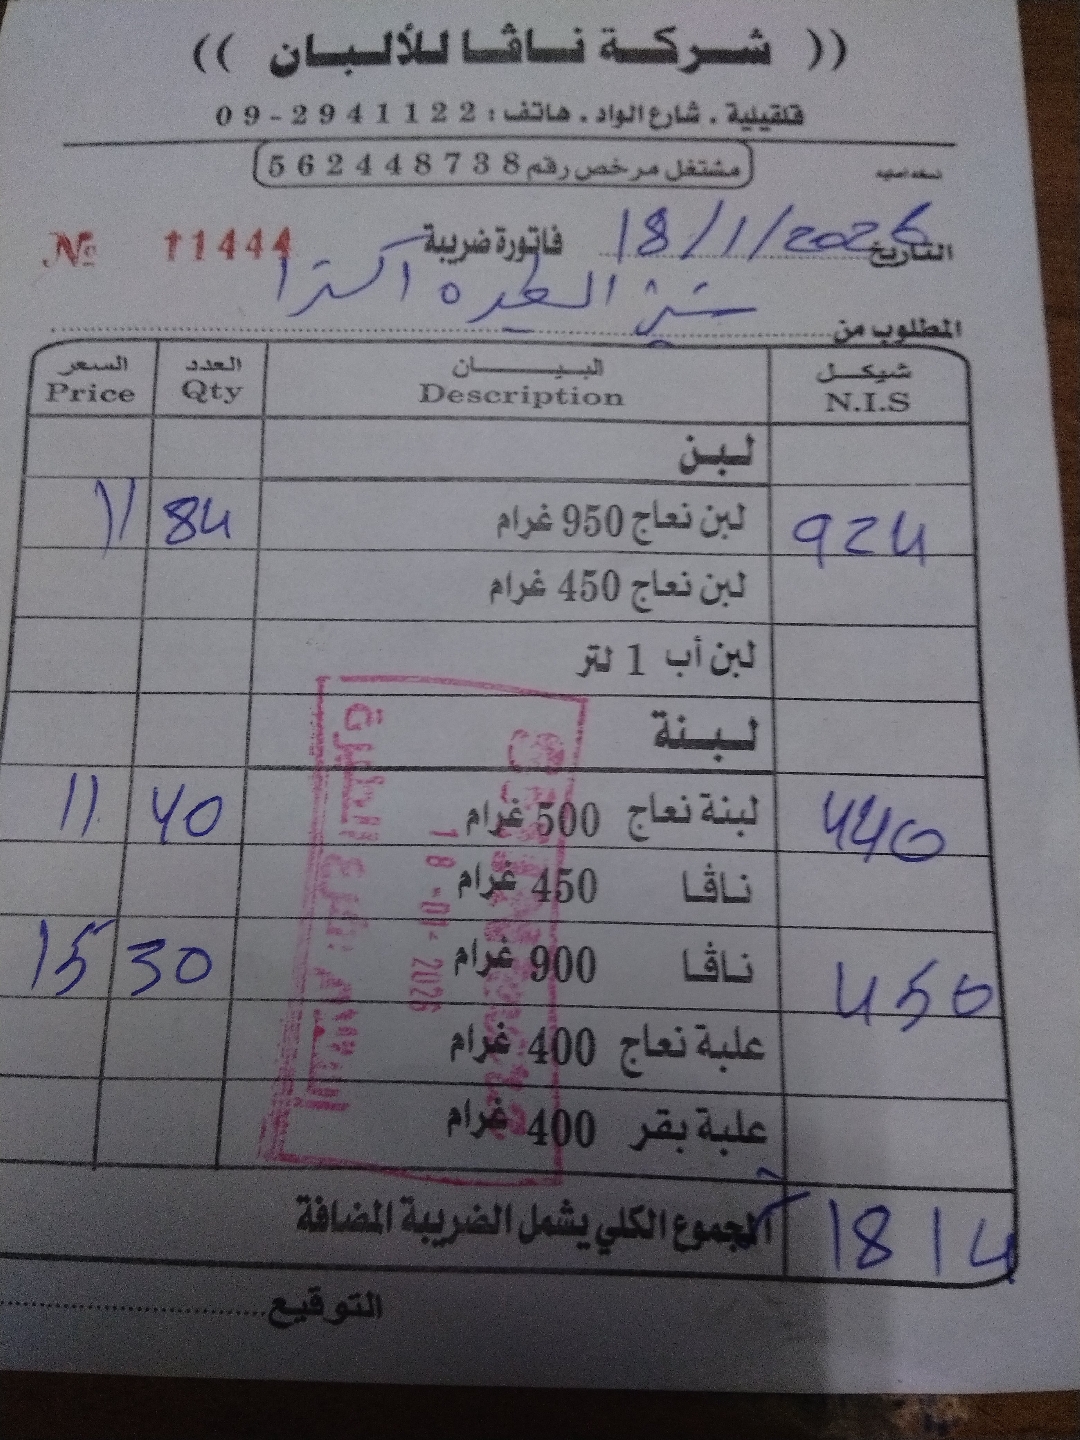 (( شركة ناڤا للألبان ))
قلقيلية . شارع الواد . هاتف : 09-2941122
مشتغل مرخص رقم 562448738
نسخة أصلية
التاريخ 18/1/2026 فاتورة ضريبة № 11444
المطلوب من اكسترا
شيكل البيـــان العدد السعر
N.I.S Description Qty Price
لبن
924 لبن نعاج 950 غرام 84 11
لبن نعاج 450 غرام
لبن أب 1 لتر
لبنة
440 لبنة نعاج 500 غرام 40 11
ناڤا 450 غرام
450 ناڤا 900 غرام 30 15
علبة نعاج 400 غرام
علبة بقر 400 غرام
المجموع الكلي يشمل الضريبة المضافة 1814
التوقيع
18-01-2026